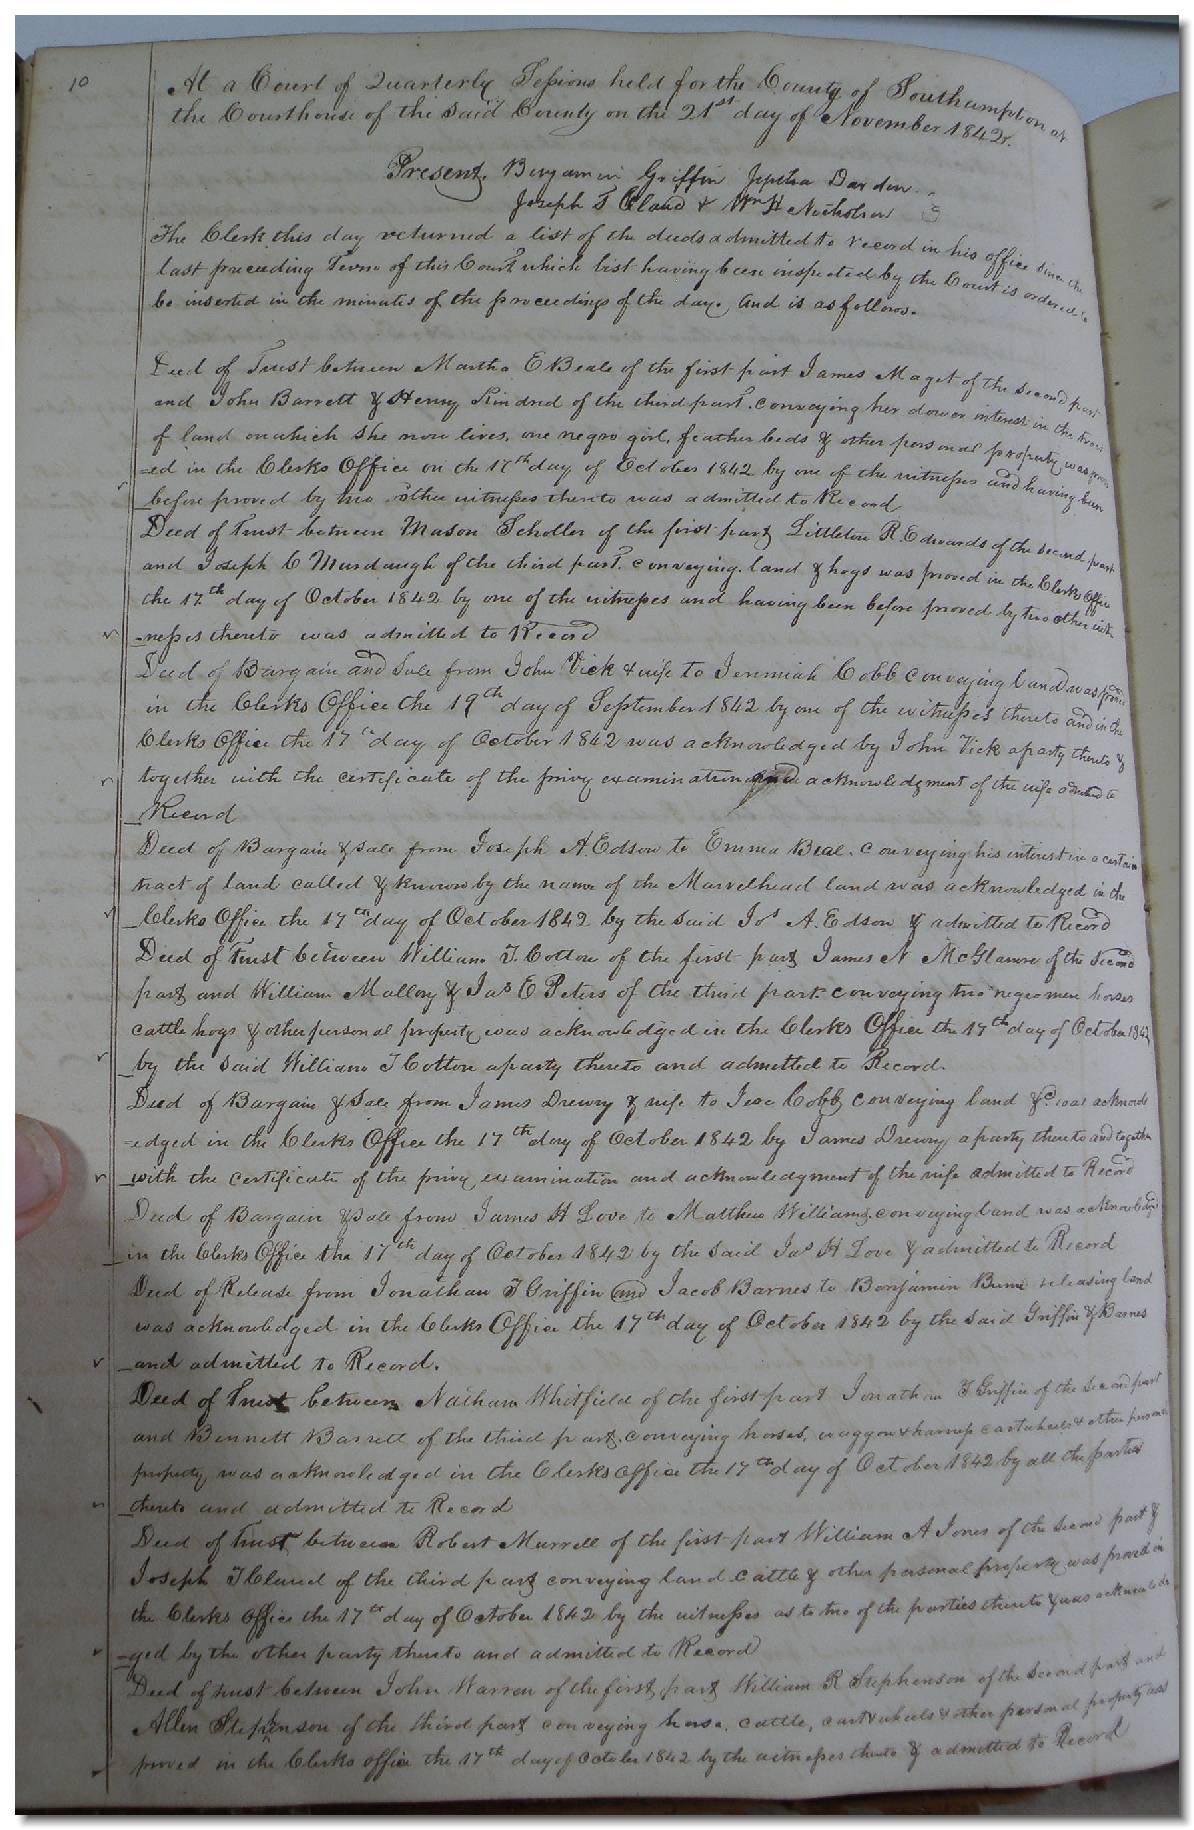 10
At a Court of Quarterly Sessions held for the County of Southampton at
the Courthouse of the said County on the 21st day of November 1842.
Present. Benjamin Griffin Jeptha Darden
Joseph T Claud & Wm H Nicholson
The Clerk this day returned a list of the deeds admitted to record in his office since the
last preceding Term of this Court which list having been inspected by the Court is ordered to
be inserted in the minutes of the proceedings of the day. And is as follows.
Deed of Trust between Martha E Beale of the first part James Maget of the second part
and John Barrett & Henry Kindred of the third part. conveying her dower interest in the tract
of land on which she now lives, one negro girl, feather beds & other personal property was prov
=ed in the Clerks Office on the 17th day of October 1842 by one of the witnesses and having been
before proved by two other witnesses thereto was admitted to Record
Deed of Trust between Mason Scholler of the first part Littleton R. Edwards of the second part
and Joseph C Murdaugh of the third part. conveying land & hogs was proved in the Clerks Office
the 17th day of October 1842 by one of the witnesses and having been before proved by two other wit
=nesses thereto was admitted to Record
Deed of Bargain and Sale from John Vick & wife to Jeremiah Cobb conveying land was proved
in the Clerks Office the 19th day of September 1842 by one of the witnesses thereto and in the
Clerks Office the 17th day of October 1842 was acknowledged by John Vick a party thereto &
together with the certificate of the privy examination and acknowledgment of the wife admitted to
Record
Deed of Bargain & Sale from Joseph A. Edson to Emma Beal. conveying his interest in a certain
tract of land called & known by the name of the Marvelhead land was acknowledged in the
Clerks Office the 17th day of October 1842 by the said Jos A. Edson & admitted to Record
Deed of Trust between William T. Cotton of the first part James N McGlamre of the second
part and William Mallory & Jas E Peters of the third part. conveying two negro men horses
cattle hogs & other personal property was acknowledged in the Clerks Office the 17th day of October 1842
by the said William T Cotton a party thereto and admitted to Record.
Deed of Bargain & Sale from James Drewry & wife to Jesse Cobb conveying land &c was acknowl
=edged in the Clerks Office the 17th day of October 1842 by James Drewry a party thereto and together
with the certificate of the privy examination and acknowledgment of the wife admitted to Record
Deed of Bargain & Sale from James H Love to Matthew Williams. conveying land was acknowledged
in the Clerks Office the 17th day of October 1842 by the said Jas H Love & admitted to Record
Deed of Release from Jonathan T Griffin and Jacob Barnes to Benjamin releasing land
was acknowledged in the Clerks Office the 17th day of October 1842 by the said Griffin & Barnes
and admitted to Record.
Deed of Trust between Nathan Whitfield of the first part Jonathan T Griffin of the second part
and Bennett Barrett of the third part. conveying horses, waggon & harness cartwheels & other personal
property was acknowledged in the Clerks Office the 17th day of October 1842 by all the parties
thereto and admitted to Record
Deed of Trust between Robert Murrell of the first part William A Jones of the second part &
Joseph T Claud of the third part conveying land cattle & other personal property was proved in
the Clerks Office the 17th day of October 1842 by the witnesses as to two of the parties thereto & was acknowled
=ged by the other party thereto and admitted to Record
Deed of trust between John Warren of the first part William R Stephenson of the second part and
Allen Stephenson of the third part conveying horse, cattle, cart & wheels & other personal property was
proved in the Clerks office the 17th day of October 1842 by the witnesses thereto & admitted to Record